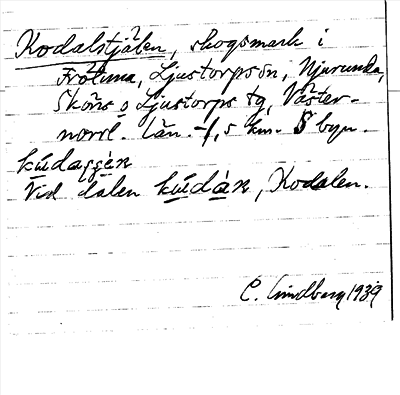 Kodalstjälen, skogsmark i
Frötuna, Ljustorpssn, Njurunda,
Sköns o Ljustorps tg, Väster-
norrl. län. -1,5 km. S byn.
Vid dalen kúdàn, Kodalen.
C. Lindberg 1939